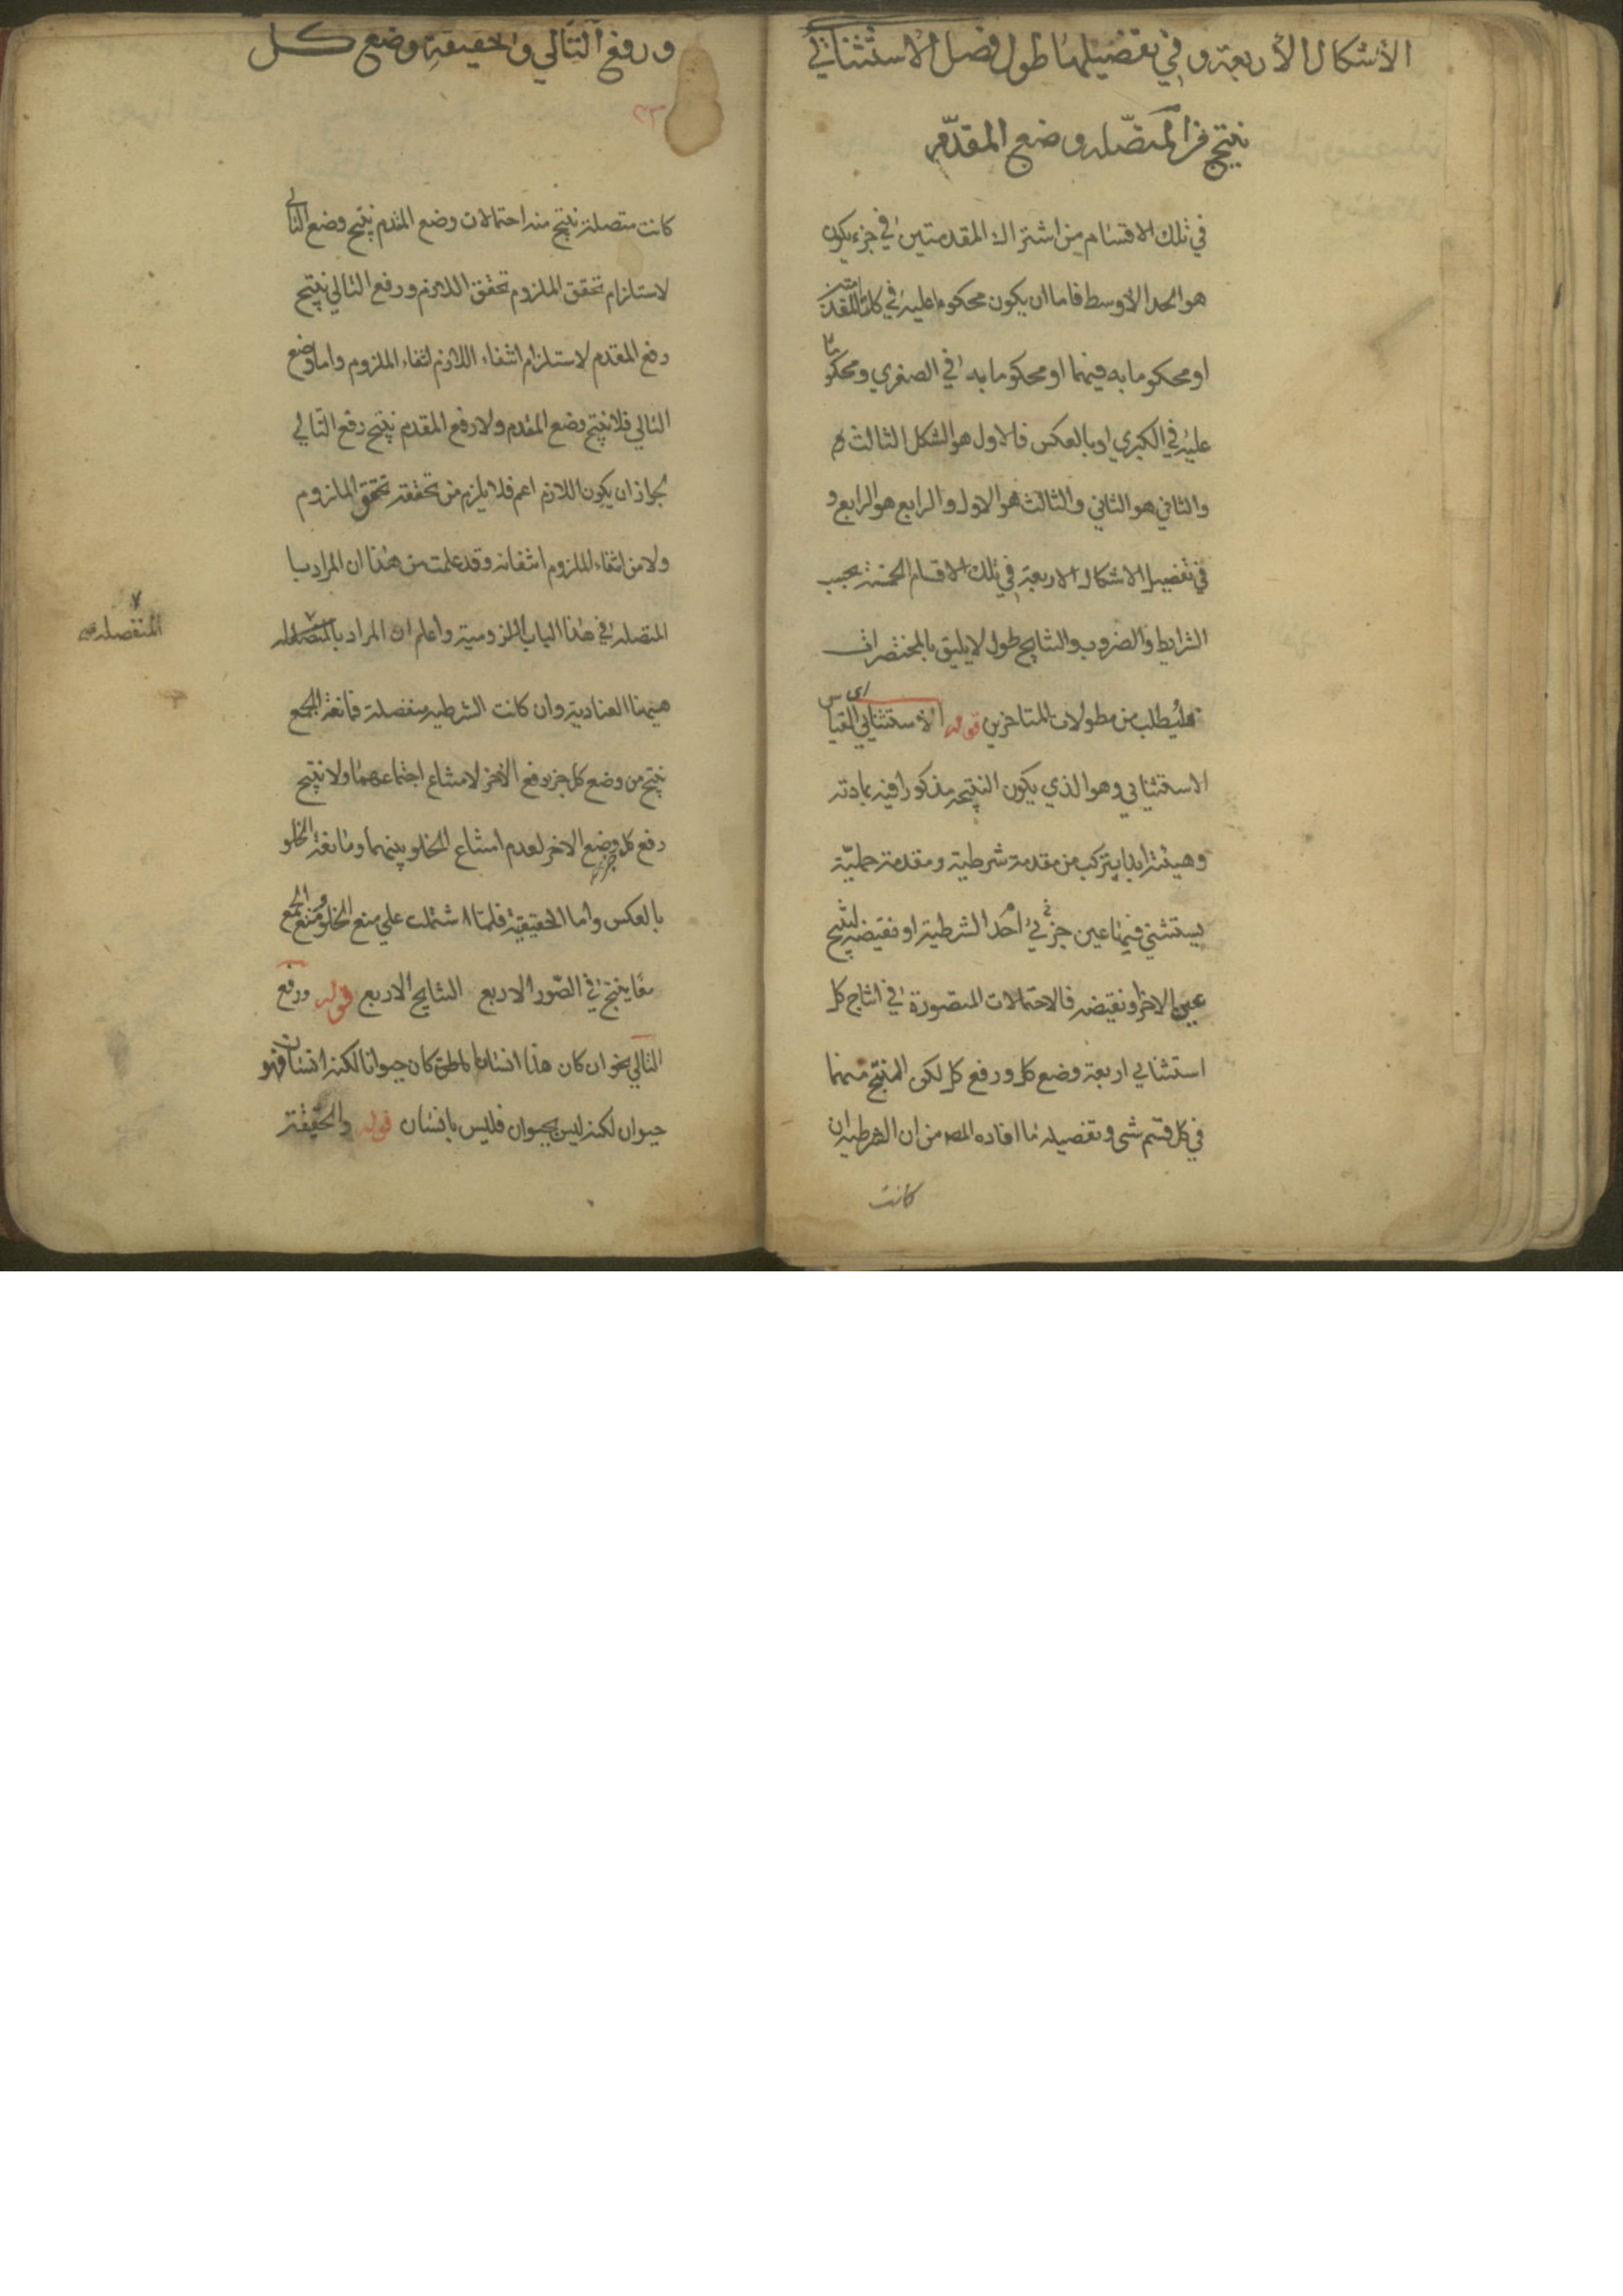 الأشكال الأربعة وفي تفضيلها طول فصل الاستثنائي
ينتج من المتصله وضع المقدم
في تلك الاقسام من اشتراك المقدمتين في جزء يكون
هو الحد الاوسط فاما ان يكون محكوما عليه في كلتا المقدمتين
او محكوما به فيهما او محكوما به في الصغري ومحكوما
عليه في الكبري او بالعكس فالاول هو الشكل الثالث
والثاني هو الثاني والثالث هو الاول والرابع هو الرابع و
في تفضيل الاشكال الاربعة في تلك الاقسام الخمسة بحسب
الشرايط والضروب والنتايج طول لا يليق بالمختصرات
فليطلب من مطولات المتاخرين قوله الاستثنايي اي القياس
الاستثنايي وهو الذي يكون النتيجه مذكورا فيه بمادته
وهيئته ابدا يتركب من مقدمة شرطية ومقدمة حملية
يستثني فيها عين جزئي احد الشرطية او نقيضه لينتج
عين الاخر او نقيضه فالاحتمالات المتصورة في انتاج كل
استثنايي اربعة وضع كل ورفع كل لكن المنتج منهما
في كل قسم شي وتفصيله ما افاده المص من ان الشرطيه ان
كانت
ورفع التالي والحقيقة وضع كل
٢٣
كانت متصلة ينتج منه احتمالات وضع المقدم ينتج وضع التالي
لاستلزام تحقق الملزوم تحقق اللازم ورفع التالي ينتج
رفع المقدم لاستلزام انتفاء اللازم انتفاء الملزوم واما وضع
التالي فلا ينتج وضع المقدم ولا رفع المقدم ينتج رفع التالي
لجواز ان يكون اللازم اعم فلا يلزم من تحققه تحقق الملزوم
ولا من انتفاء الملزوم انتفائه وقد علمت من هذا ان المراد با
المتصله في هذا الباب اللزومية واعلم ان المراد بالمتصله
المنفصله
هيهنا العنادية وان كانت الشرطيه منفصلة فمانعة الجمع
ينتج من وضع كل جز رفع الاخر لامتناع اجتماعهما ولا ينتج
رفع كل جزء وضع الاخر لعدم امتناع الخلو بينهما ومانعة الخلو
بالعكس واما الحقيقية فلما اشتملت علي منع الخلو ومنع الجمع
معا ينتج في الصور الاربع النتايج الاربع قوله ورفع
التالي نحو ان كان هذا انسانا كان حيوانا لكنه انسان فهو
حيوان لكنه ليس بحيوان فليس بانسان قوله والحقيقة